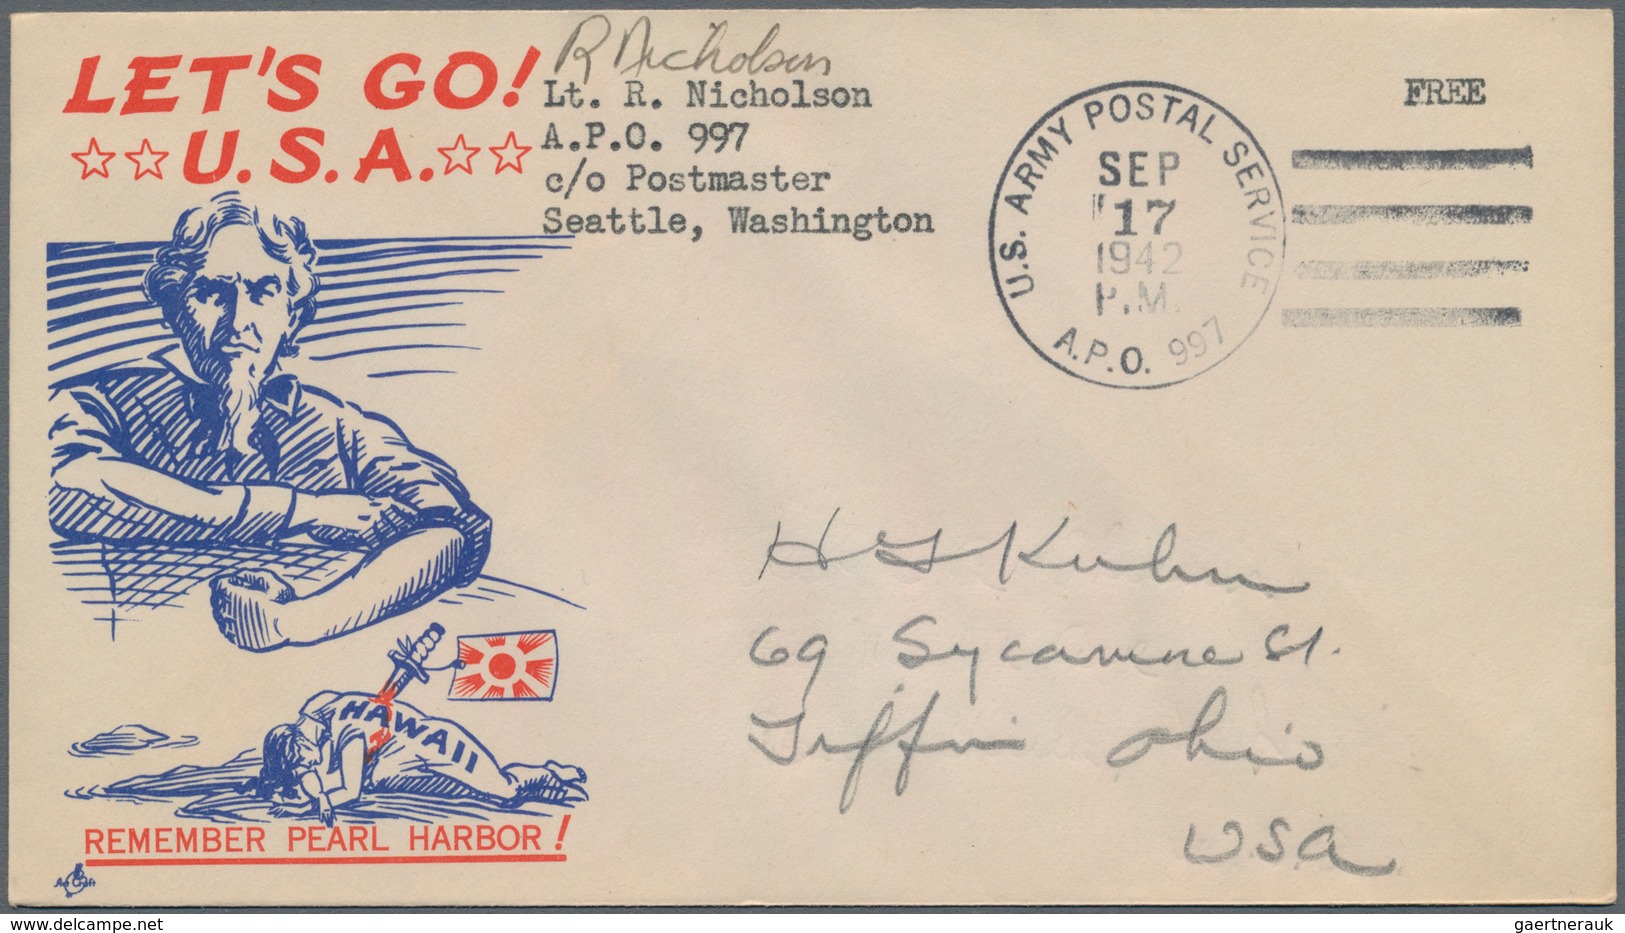 LET'S GO!
U.S.A.
R Nicholson
Lt. R. Nicholson
A.P.O. 997
c/o Postmaster
Seattle, Washington
U.S. ARMY POSTAL SERVICE
SEP
17
1942
P.M.
A.P.O. 997
FREE
H G Kuhn
69 Sycamore St.
Tiffin Ohio
USA
HAWAII
REMEMBER PEARL HARBOR!
Art Craft
www.delcampe.net
gaertnerauk